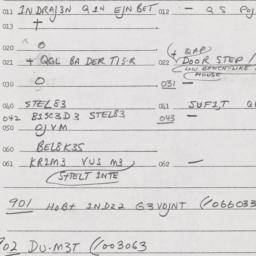 011 INDRAJ3N Q14 EJNBET 012 — QS POJ
013 +
020 O
021 + QGL BADERTISR 022 (+ QAP) DOOR STEP /
LOW BENCH-LIKE
HOUSE
030 O 031 —
040 STELE3 041 SUF1,T
042 B1SC3D3 STELE3 043 —
050 OJVM
060 BEL8K3S
061 KR1M3 VU1 M3 062 —
STELT INTE
901 HOB+ 2ND22 G3VOJNT (/066033
902 DU-M3T (/003063